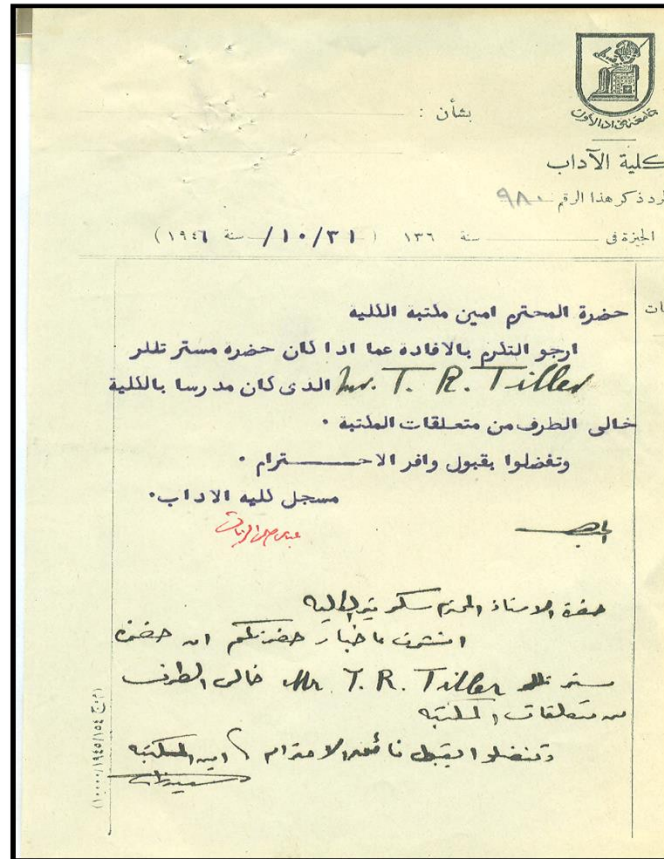 جامعة فؤاد الأول
بشأن :
كلية الآداب
رد ذكر هذا الرقم ٩٨٠
الجيزة في سنة ١٣٦ ( ٣١/١٠/ سنة ١٩٤٦ )
ات
حضرة المحترم امين ملتبة الللية
ارجو التلرم بالافاده عما اذا لان حضره مستر تللر
Mr. T. R. Tiller الذى لان مدرسا بالللية
خالى الطرف من متعلقات الملتبة ٠
وتفضلوا بقبول وافر الاحـــترام ٠
مسجل لليه الاداب٠
حضرة الاستاذ المحترم سكرتير الكلية
اتشرف باخبار حضرتكم ان حضرة
مستر تللر Mr. T. R. Tiller خالى الطرف
من متعلقات المكتبه
وتفضلوا بقبول فائق الاحترام امين المكتبه
(١٠٠٠٠/١٩٤٥/١٥٤ ج م)